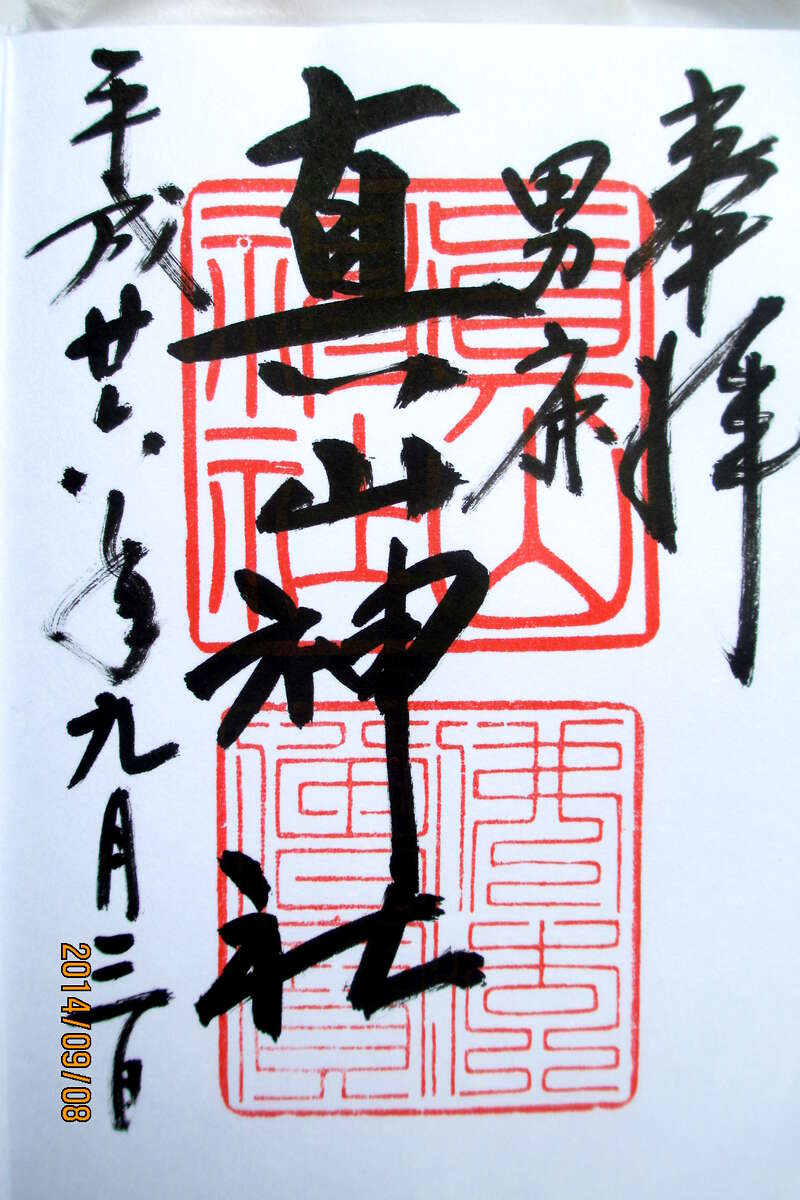 奉拝
男鹿
真山神社
眞山
神社
平成廿六年九月三日
2014/09/08